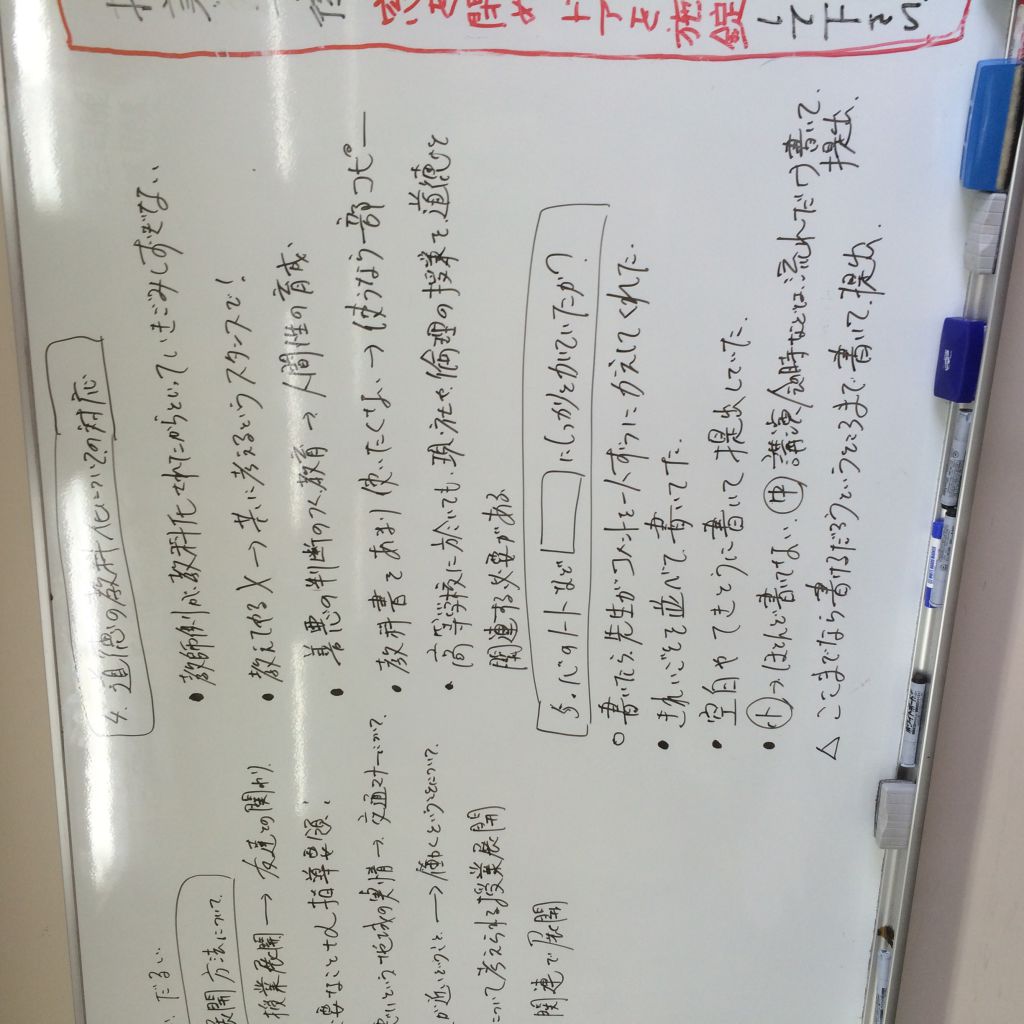 だるい
展開方法について
授業展開 → 友達との関わり
要なこと+α 指導要領!
悪いという地域の実情 → 交通マナーについて
が近いということ → 働くということについて
について考えられる授業展開
関連で展開
4. 道徳の教科化についての対応
• 教師側が教科化されたからといっていきごみしすぎない
• 教えてやる X → 共に考えるというスタンスで!
• 善悪の判断のつく教育 → 人間性の育成
• 教科書をあまり使いたくない → 使うなら一部コピー
• 高等学校に於いても、現社や倫理の授業で、道徳心と
関連する必要がある
5. 心のノートなど □ にしっかりとかいていたか?
○ 書いたら先生がコメントを一人ずつにかえしてくれた
• きれいごとを並べて書いてた
• 空白やてきとうに書いて提出していた
• 小 → ほとんど書けない、中 講演会時などは、流れだけ書いて、
提出、
△ ここまでなら書けるだろうというところまで書いて、提出、
窓を
開め
ドアを
施錠
して
下さい